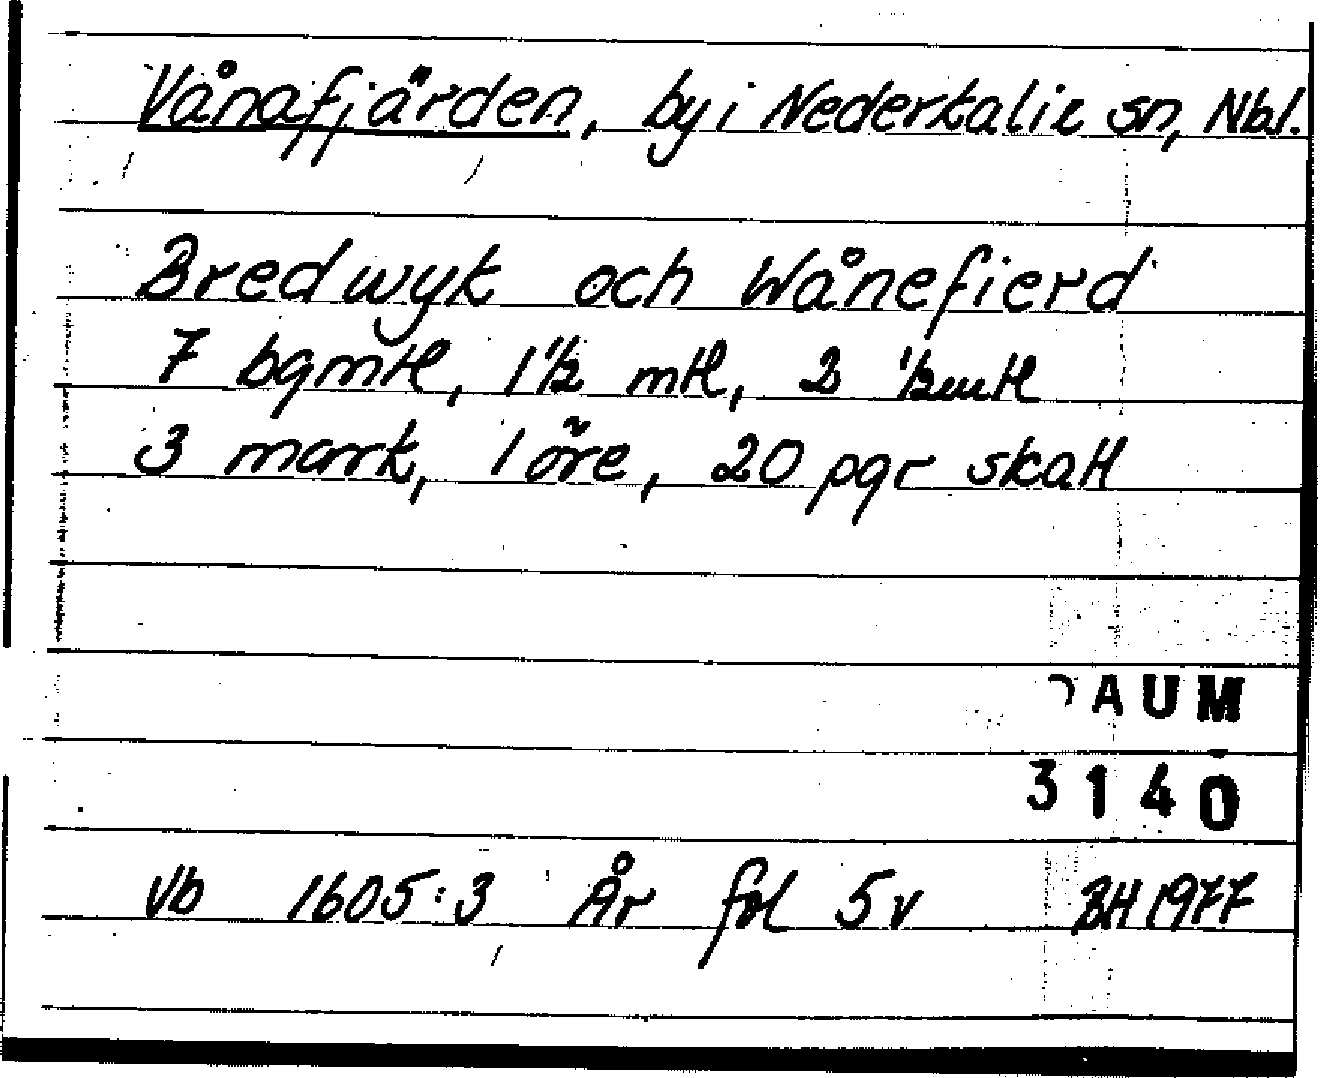 Vånafjärden, by i Nederkalix sn, Nbl.
Bredwyk och Wånefierd
7 bgmtl, 1 1/2 mtl, 2 1/2mtl
3 mark, 1 öre, 20 pgr skatt
DAUM
3140
Vb 1605:3 År fol 5v BH 1977